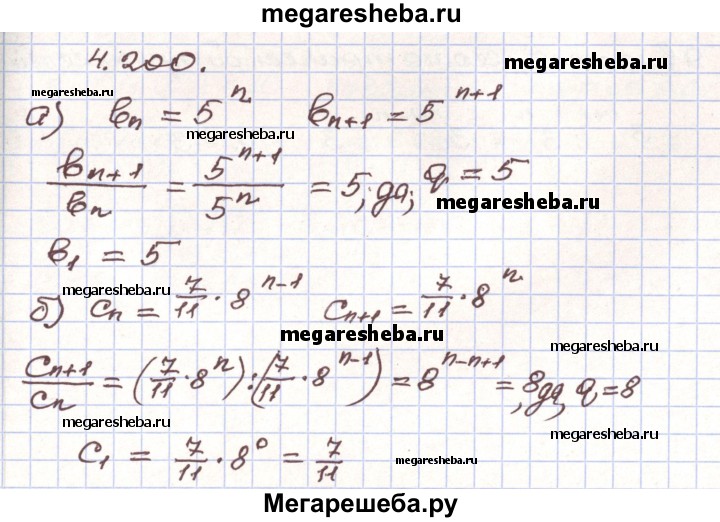 megaresheba.ru
4.200.
megaresheba.ru
megaresheba.ru
а) bₙ = 5ⁿ bₙ₊₁ = 5ⁿ⁺¹
megaresheba.ru
bₙ₊₁/bₙ = 5ⁿ⁺¹/5ⁿ = 5; да; q = 5
megaresheba.ru
b₁ = 5
megaresheba.ru
б) cₙ = 7/11 · 8ⁿ⁻¹ cₙ₊₁ = 7/11 · 8ⁿ
megaresheba.ru
cₙ₊₁/cₙ = (7/11 · 8ⁿ) : (7/11 · 8ⁿ⁻¹) = 8ⁿ⁻ⁿ⁺¹ = 8; да, q = 8
megaresheba.ru
megaresheba.ru
c₁ = 7/11 · 8⁰ = 7/11
megaresheba.ru
megaresheba.ru
Мегарешеба.ру